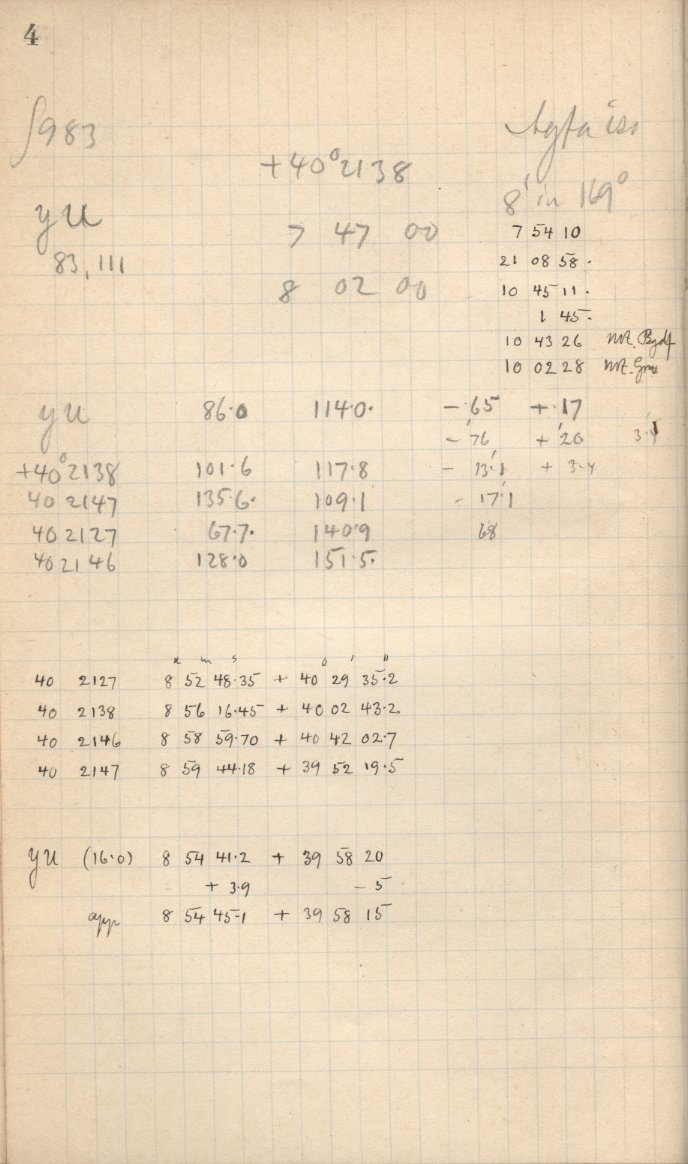 4
∫983
Agfa iso
+40°2138
8' in 169°
YU
7 47 00
7 54 10
83,111
21 08 58.
8 02 00
10 45 11.
1 45.
10 43 26
10 02 28
YU 86.0 114.0. -.65 +.17
-'76 +'20
+40°2138 101.6 117.8 - 13.1 + 3.4
40 2147 135.6. 109.1 - 17.1
40 2127 67.7. 140.9 68
40 2146 128.0 151.5.
h m s ° ' "
40 2127 8 52 48.35 + 40 29 35.2
40 2138 8 56 16.45 + 40 02 43.2
40 2146 8 58 59.70 + 40 42 02.7
40 2147 8 59 44.18 + 39 52 19.5
YU (16.0) 8 54 41.2 + 39 58 20
+ 3.9 - 5
app 8 54 45.1 + 39 58 15